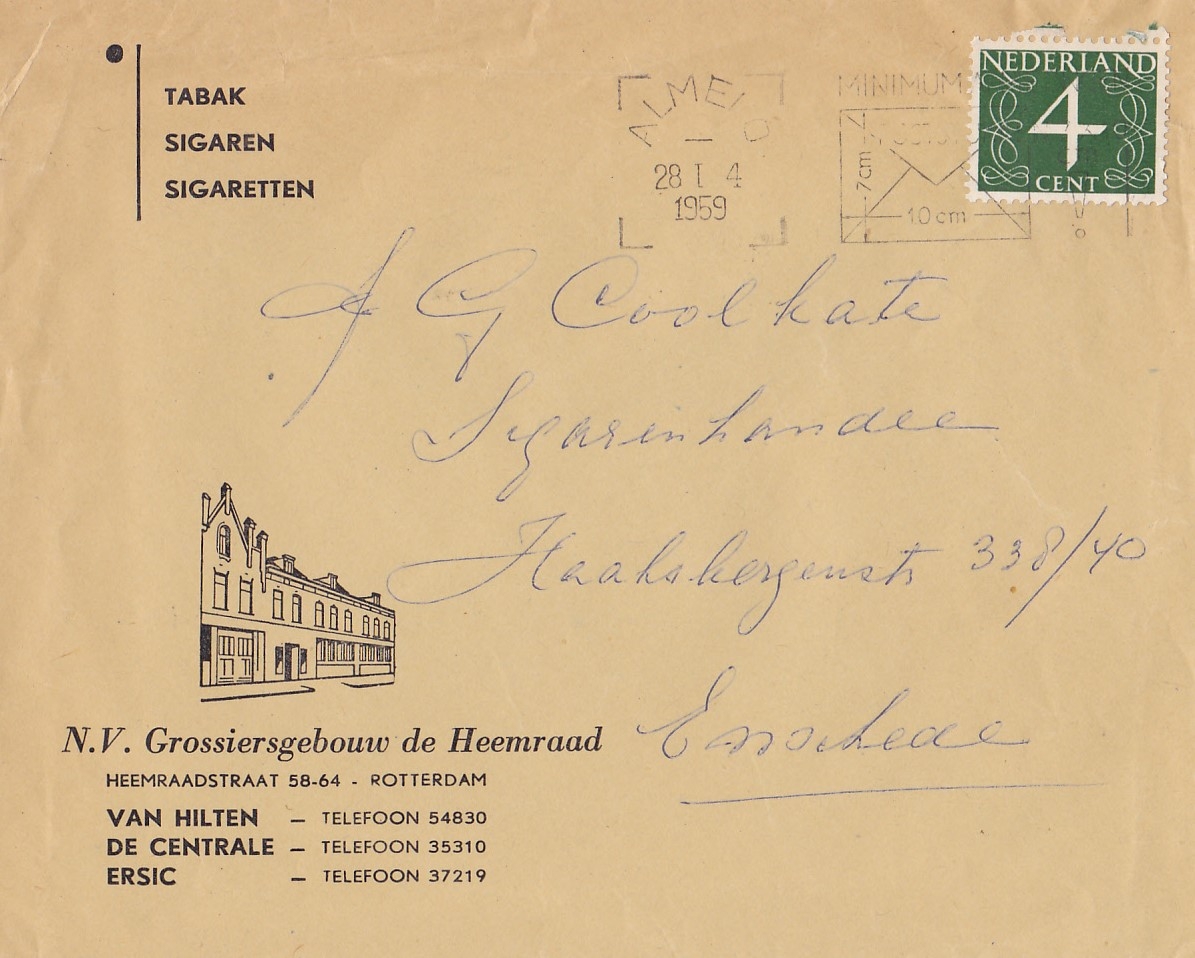 TABAK
SIGAREN
SIGARETTEN
ALMELO
28 I 4
1959
MINIMUM
7 cm
10 cm
NEDERLAND
4
CENT
A G Coolkate
Sigarenhandel
Haaksbergenstr 338/40
Enschede
N.V. Grossiersgebouw de Heemraad
HEEMRAADSTRAAT 58-64 - ROTTERDAM
VAN HILTEN – TELEFOON 54830
DE CENTRALE – TELEFOON 35310
ERSIC – TELEFOON 37219